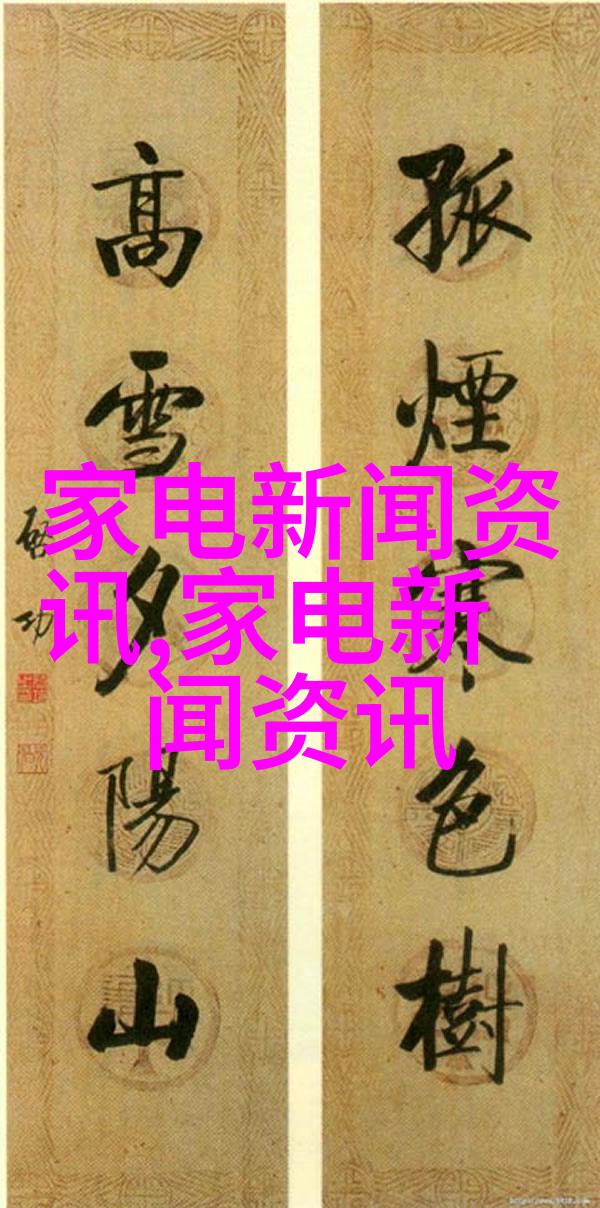 孤煙寒色樹
高雪夕陽山
啓功
家电新闻资
讯,家电新
闻资讯